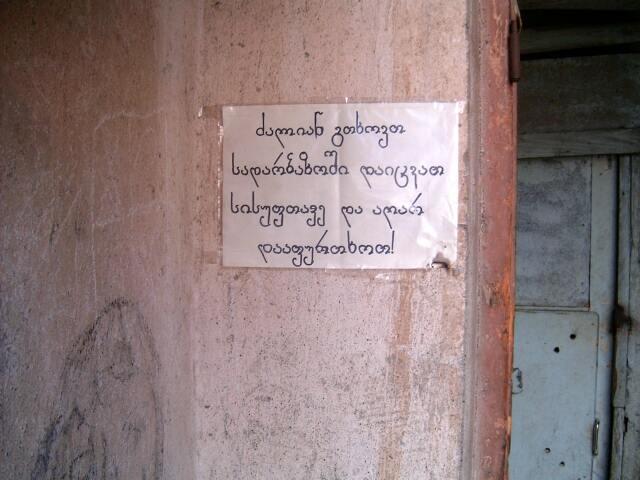 ძალიან გთხოვთ
სადარბაზოში დაიცვათ
სისუფთავე და აღარ
დააფურთხოთ!